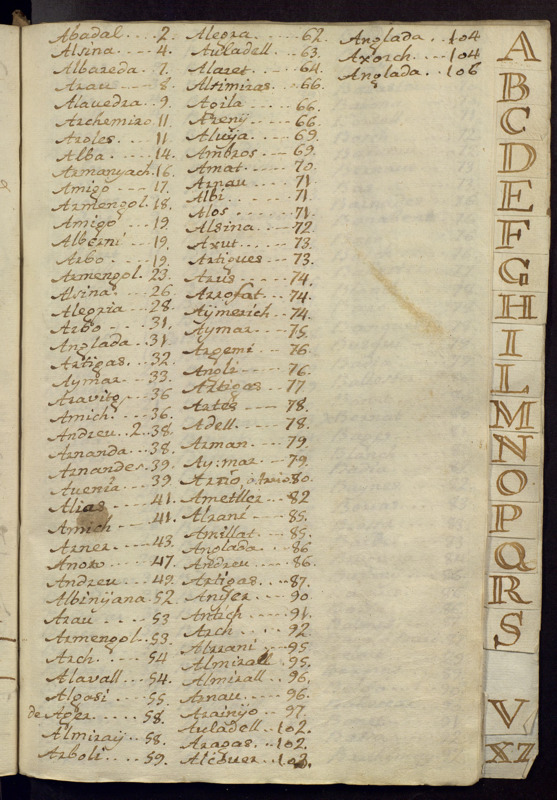 Abadal.... 2.
Alsina.... 4.
Albareda.. 7.
Arau.... 8.
Alavedra.. 9.
Archemiro. 11.
Aroles.... 11.
Alba.... 14.
Armanyach. 16.
Amigo.... 17.
Armengol. 18.
Amigo.... 19.
Alberni... 19.
Arbo.... 19.
Armengol. 23.
Alsina.... 26.
Alegria... 28.
Arbo.... 31.
Anglada... 31
Artigas... 32.
Aymar.... 33.
Aravitg... 36
Amich.... 36.
Andreu.. 2.. 38.
Arnanda... 38.
Arnandes. 39.
Auenia... 39
Alias.... 41.
Amich.... 41.
Arner.... 43.
47.
Andreu.... 49.
Albinÿana. 52
Arau.... 53
Armengol.. 53.
Arch.... 54
Alavall... 54.
Algasi.... 55.
de Ager..... 58.
Almiraÿ... 58.
Arboli.... 59.
Alegra.... 62.
Auladell... 63.
Alaret.... 64.
Altimiras.. 66.
66.
66.
69.
Ambros... 69.
Amat.... 70.
Arnau.... 71
Albi.... 71.
Alos.... 71.
Alsina.... 72
Axut.... 73.
Artigues... 73.
Arús.... 74.
Arrofat... 74.
Aÿmerich.. 74.
Aymar.... 75.
Argemi... 76.
Angli.... 76.
Artigas... 77
Artés.... 78.
Adell.... 78.
Arman.... 79.
Ay:mar... 79.
80.
Ametller.. 82
85.
Amillat... 85.
Anglada... 86
Andreu... 86.
Artigas... 87.
90
Antich.... 91.
Arch.... 92
95
Almirall.. 95.
Almirall.. 96.
Arnau.... 96.
97.
Auladell.. 102.
Aragas... 102.
Alcover... 103.
Anglada... 104
Axorch... 104
Anglada... 106
A
B
C
D
E
F
G
H
I
L
M
N
O
P
Q
R
S
V
XZ